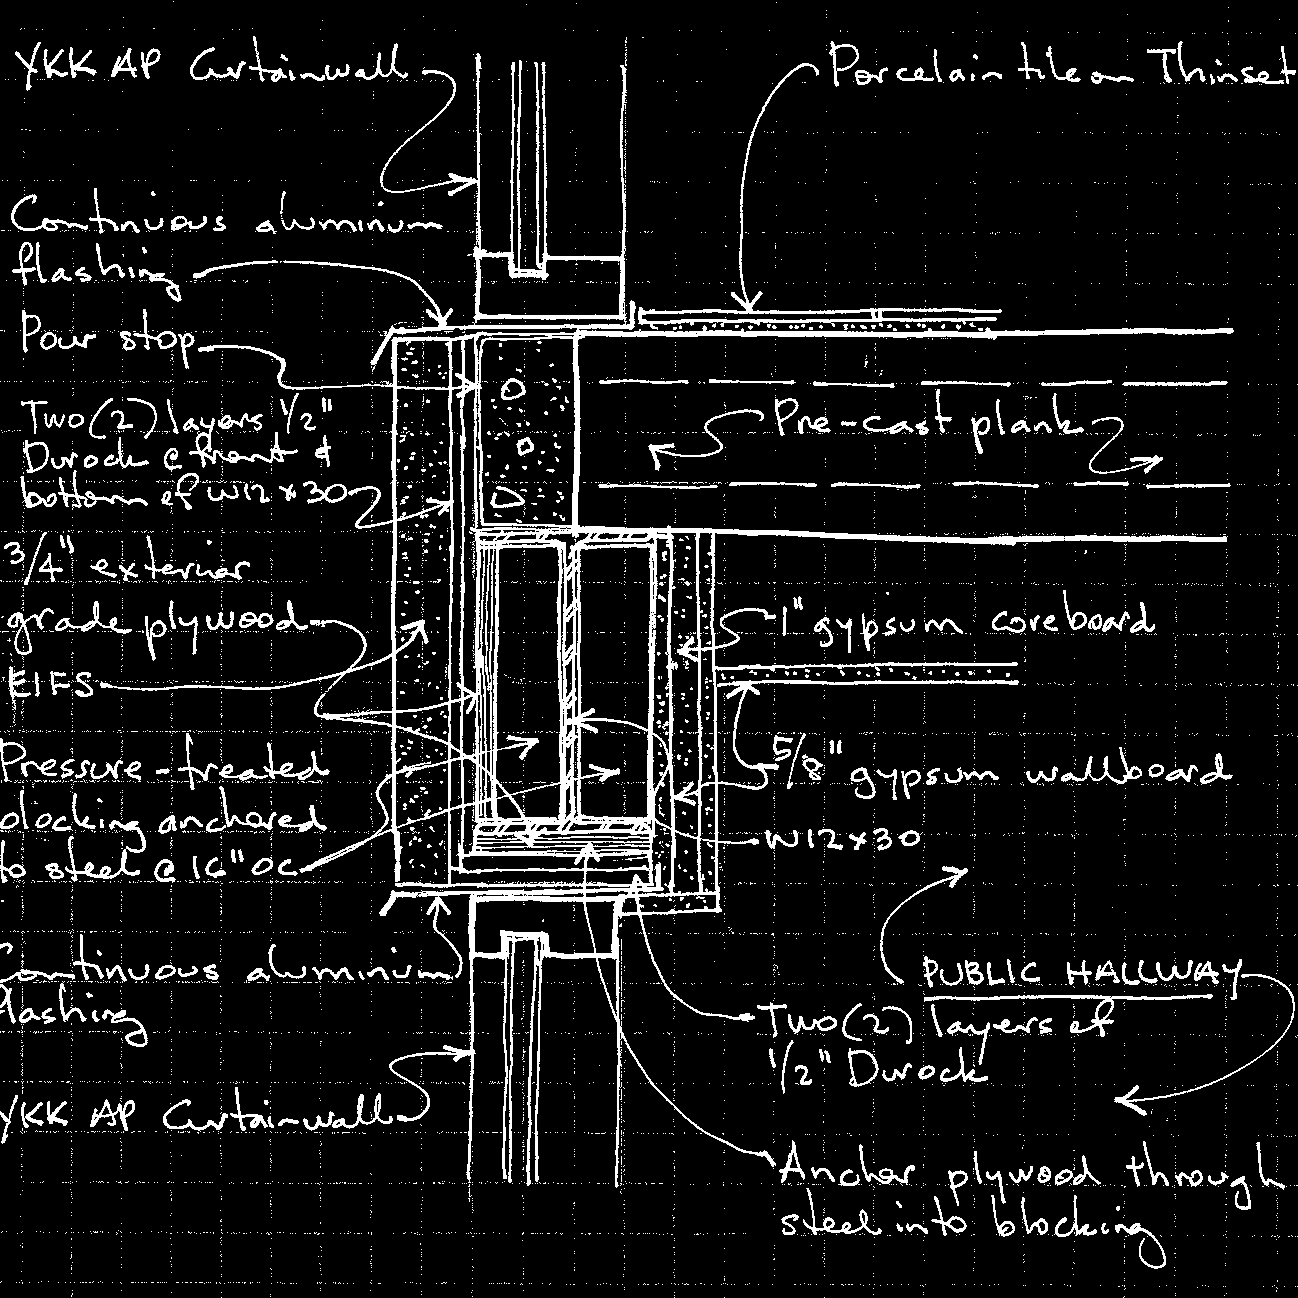 YKK AP Curtainwall
Porcelain tile on Thinset
Continuous aluminum
flashing
Pour stop
Two (2) layers 1/2"
Durock @ front &
bottom of W12x30
Pre-cast plank
3/4" exterior
grade plywood
1" gypsum coreboard
EIFS
Pressure-treated
blocking anchored
to steel @ 16" OC
5/8" gypsum wallboard
W12x30
Continuous aluminium
flashing
PUBLIC HALLWAY
Two (2) layers of
1/2" Durock
YKK AP Curtainwall
Anchor plywood through
steel into blocking